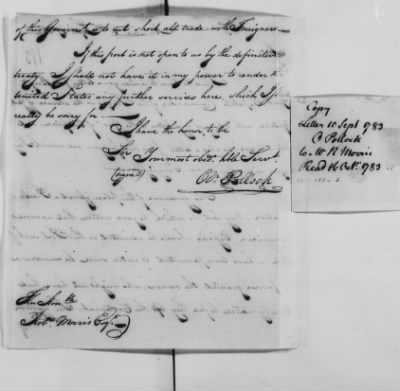 of this Governmt. is to cut short all trade with Foreigners
If this port is not open to us by the definitive
treaty I shall not have it in my power to render the
United States any further services here, which I'll
really be sorry for
I have the honor to be
Sir Your most obedt. hble Servt.
(signed)
Or. Pollock
The Honble
Robt. Morris Esqr.
Copy
Letter 10 Sept 1783
O Pollock
to R Morris
Read 16 Octr. 1783